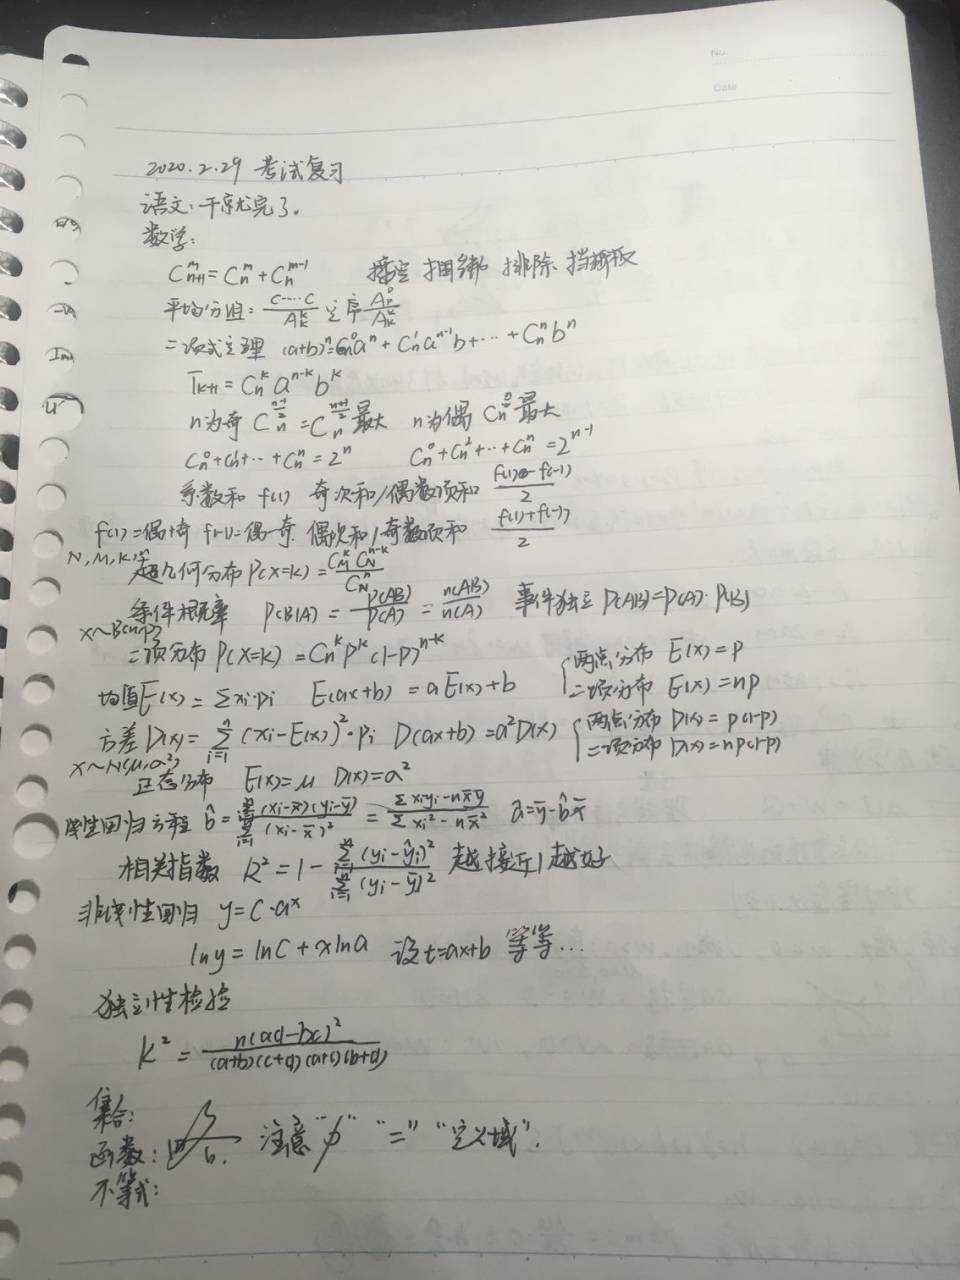 No.
Date
2020.2.29 考试复习
语文:干就完了。
数学:
C_{n+1}^m = C_n^m + C_n^{m-1} 插空 捆绑 排除 挡板
平均分组: \frac{C····C}{A_k^k} 定序 \frac{A_n^n}{A_k^k}
二项式定理 (a+b)^n = C_n^0 a^n + C_n^1 a^{n-1} b + ··· + C_n^n b^n
T_{k+1} = C_n^k a^{n-k} b^k
n为奇 C_n^{\frac{n-1}{2}} = C_n^{\frac{n+1}{2}} 最大 n为偶 C_n^{\frac{n}{2}} 最大
C_n^0 + C_n^1 + ··· + C_n^n = 2^n C_n^0 + C_n^2 + ··· + C_n^n = 2^{n-1}
系数和 f(1) 奇次和/偶数项和 \frac{f(1)-f(-1)}{2}
f(1)=偶+奇 f(-1)=偶-奇 偶次和/奇数项和 \frac{f(1)+f(-1)}{2}
N, M, K, n
超几何分布 P(X=k) = \frac{C_M^k C_N^{n-k}}{C_N^n}
条件概率 P(B|A) = \frac{P(AB)}{P(A)} = \frac{n(AB)}{n(A)} 事件独立 P(AB)=P(A)·P(B)
X~B(n,p)
二项分布 P(X=k) = C_n^k P^k (1-p)^{n-k}
均值 E(x) = Σxi·pi E(ax+b) = aE(x)+b { 两点分布 E(x)=p
二项分布 E(x)=np
方差 D(x) = \sum_{i=1}^n (xi-E(x))^2·pi D(ax+b)=a^2D(x) { 两点分布 D(x)=p(1-p)
二项分布 D(x)=np(1-p)
X~N(μ,σ^2)
正态分布 E(x)=μ D(x)=σ^2
线性回归方程 \hat{b} = \frac{\sum_{i=1}^n (xi-\bar{x})(yi-\bar{y})}{\sum_{i=1}^n (xi-\bar{x})^2} = \frac{Σxiyi-n\bar{x}\bar{y}}{Σxi^2-n\bar{x}^2} \hat{a}=\bar{y}-\hat{b}\bar{x}
相关指数 R^2 = 1 - \frac{\sum_{i=1}^n (yi-\hat{y}i)^2}{\sum_{i=1}^n (yi-\bar{y})^2} 越接近1越好
非线性回归 y=C·a^x
lny = lnC + xlna 设t=ax+b 等等…
独立性检验
K^2 = \frac{n(ad-bc)^2}{(a+b)(c+d)(a+c)(b+d)}
集合:
函数: 注意“∮” “=” “定义域”.
不等式: